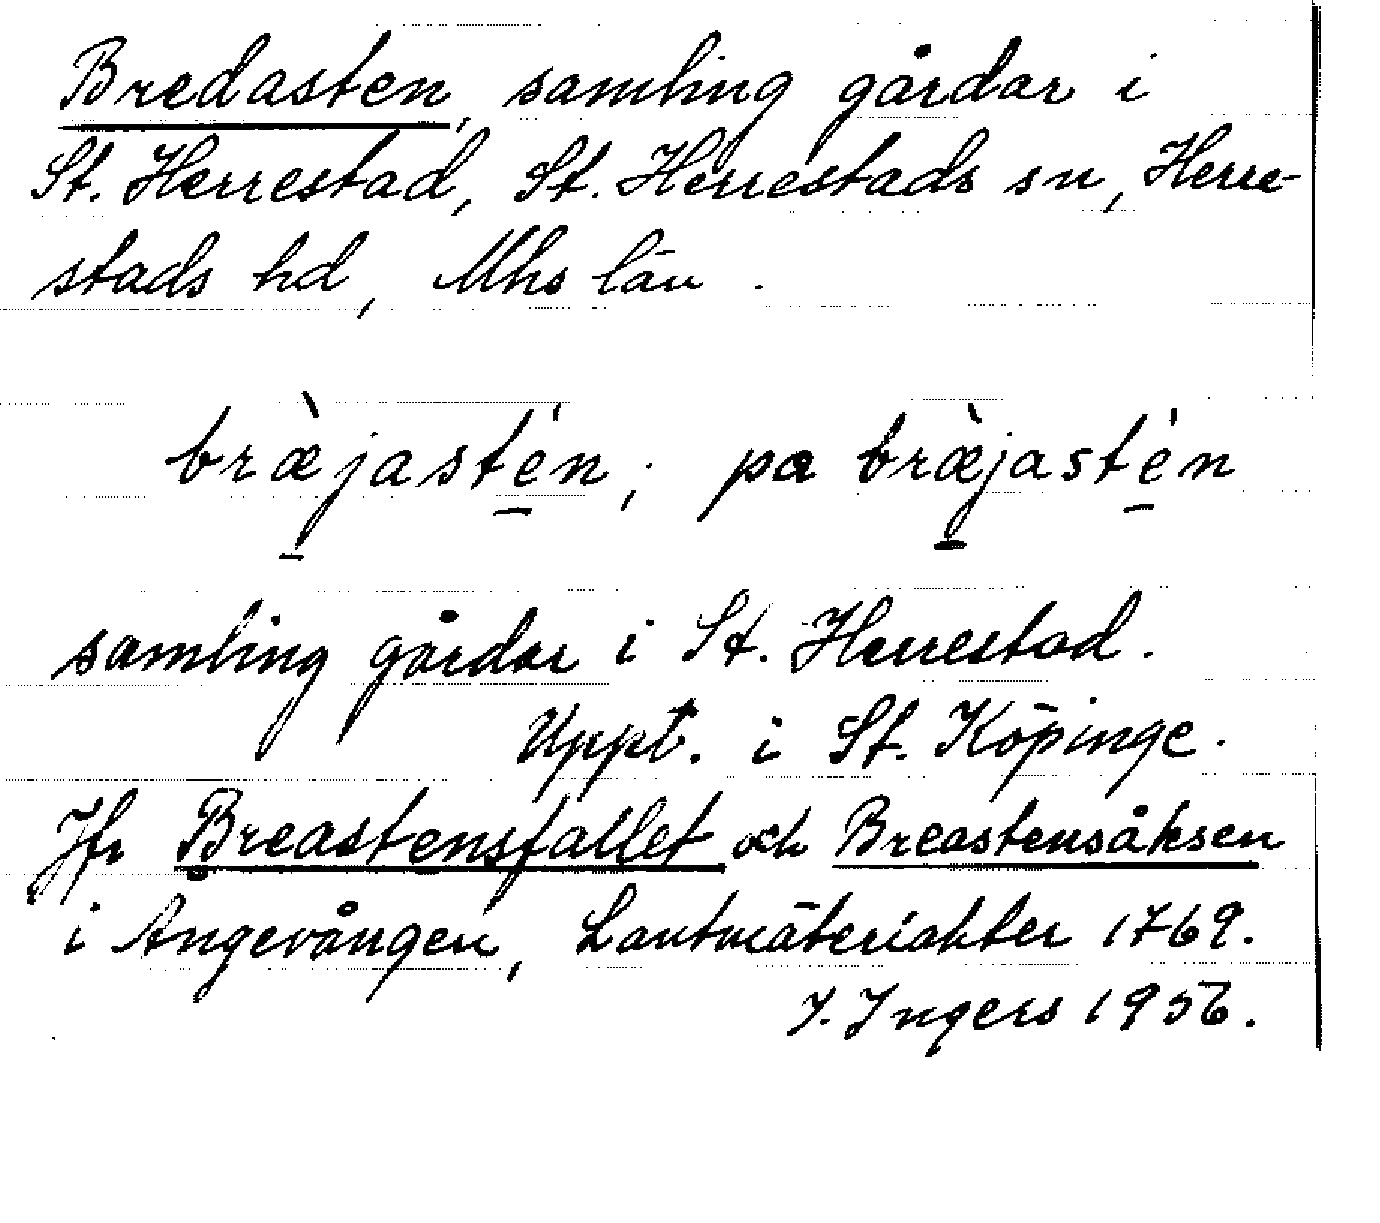 Bredasten, samling gårdar i
St. Herrestad, St. Herrestads sn, Herre-
stads hd, Mhs län.
bræ̀jastén; pa bræ̀jastén
samling gårdar i St. Herrestad.
Uppt. i St. Köpinge.
Jfr Breastensfallet och Breastensåksen
i Ängavången, Lantmäteriakter 1769.
I. Ingers 1956.